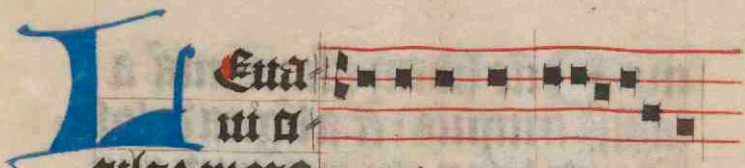 LEua-
ui a-